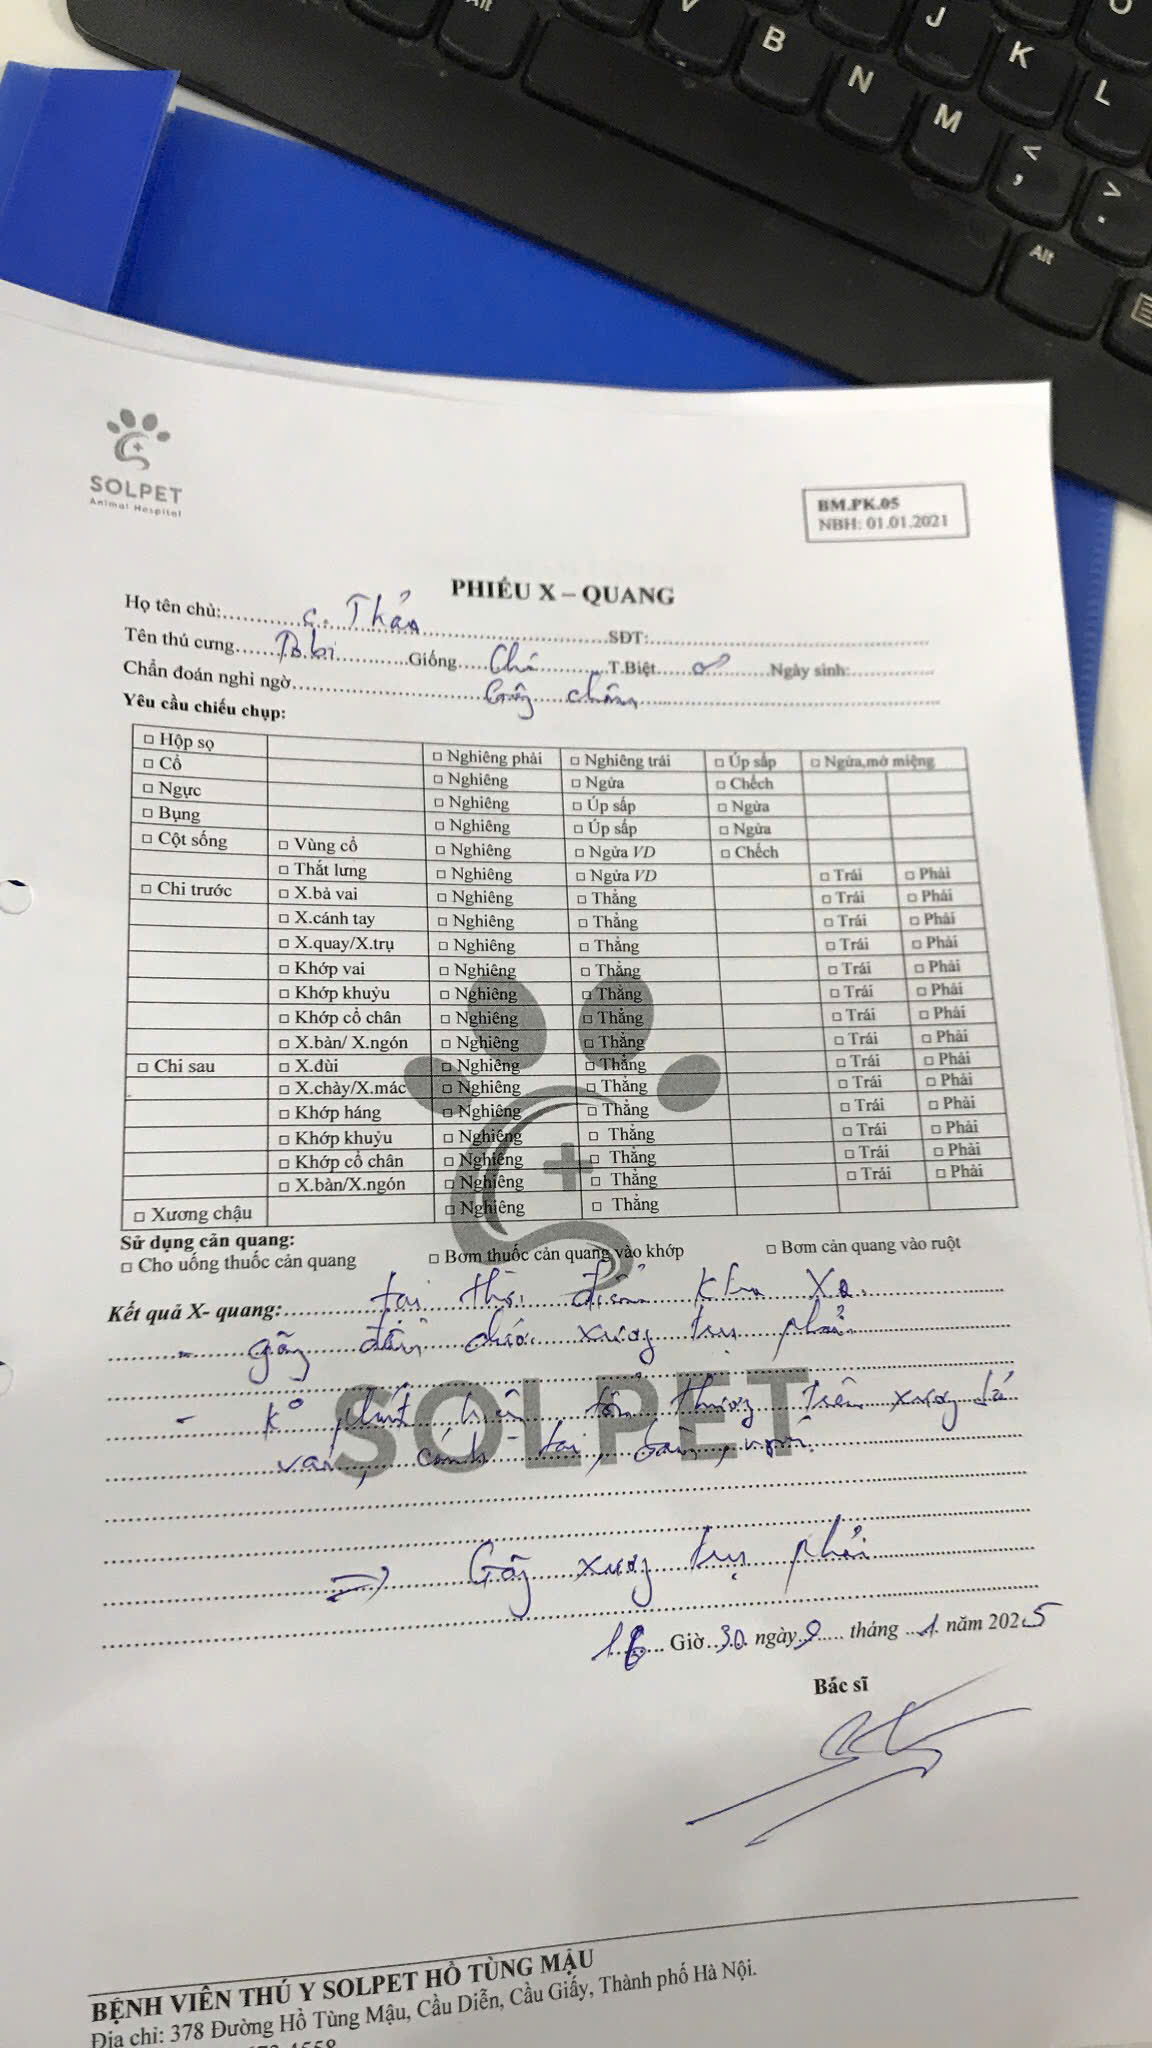 Alt
V
B
N
M
J
K
L
O
<
,
>
.
Alt
SOLPET
Animal Hospital
BM.PK.05
NBH: 01.01.2021
PHIẾU X – QUANG
Họ tên chủ: c. Thảo SĐT:
Tên thú cưng Bobi Giống Chó T.Biệt ♂ Ngày sinh:
Chẩn đoán nghi ngờ Gãy chân
Yêu cầu chiếu chụp:
□ Hộp sọ □ Nghiêng phải □ Nghiêng trái □ Úp sấp □ Ngửa,mở miệng
□ Cổ □ Nghiêng □ Ngửa □ Chếch
□ Ngực □ Nghiêng □ Úp sấp □ Ngửa
□ Bụng □ Nghiêng □ Úp sấp □ Ngửa
□ Cột sống □ Vùng cổ □ Nghiêng □ Ngửa VD □ Chếch
□ Thắt lưng □ Nghiêng □ Ngửa VD □ Trái □ Phải
□ Chi trước □ X.bả vai □ Nghiêng □ Thẳng □ Trái □ Phải
□ X.cánh tay □ Nghiêng □ Thẳng □ Trái □ Phải
□ X.quay/X.trụ □ Nghiêng □ Thẳng □ Trái □ Phải
□ Khớp vai □ Nghiêng □ Thẳng □ Trái □ Phải
□ Khớp khuỷu □ Nghiêng □ Thẳng □ Trái □ Phải
□ Khớp cổ chân □ Nghiêng □ Thẳng □ Trái □ Phải
□ X.bàn/ X.ngón □ Nghiêng □ Thẳng □ Trái □ Phải
□ Chi sau □ X.đùi □ Nghiêng □ Thẳng □ Trái □ Phải
□ X.chày/X.mác □ Nghiêng □ Thẳng □ Trái □ Phải
□ Khớp háng □ Nghiêng □ Thẳng □ Trái □ Phải
□ Khớp khuỷu □ Nghiêng □ Thẳng □ Trái □ Phải
□ Khớp cổ chân □ Nghiêng □ Thẳng □ Trái □ Phải
□ X.bàn/X.ngón □ Nghiêng □ Thẳng □ Trái □ Phải
□ Xương chậu □ Nghiêng □ Thẳng
Sử dụng cản quang:
□ Cho uống thuốc cản quang □ Bơm thuốc cản quang vào khớp □ Bơm cản quang vào ruột
Kết quả X- quang: tại thời điểm
- gãy đầu dưới xương trụ phải
- K° phát hiện tổn thương trên xương bả
vai, cánh tay, bàn, ngón.
SOLPET
=> Gãy xương trụ phải
16 Giờ 30 ngày 9 tháng 1 năm 2025
Bác sĩ
BỆNH VIỆN THÚ Y SOLPET HỒ TÙNG MẬU
Địa chỉ: 378 Đường Hồ Tùng Mậu, Cầu Diễn, Cầu Giấy, Thành phố Hà Nội.